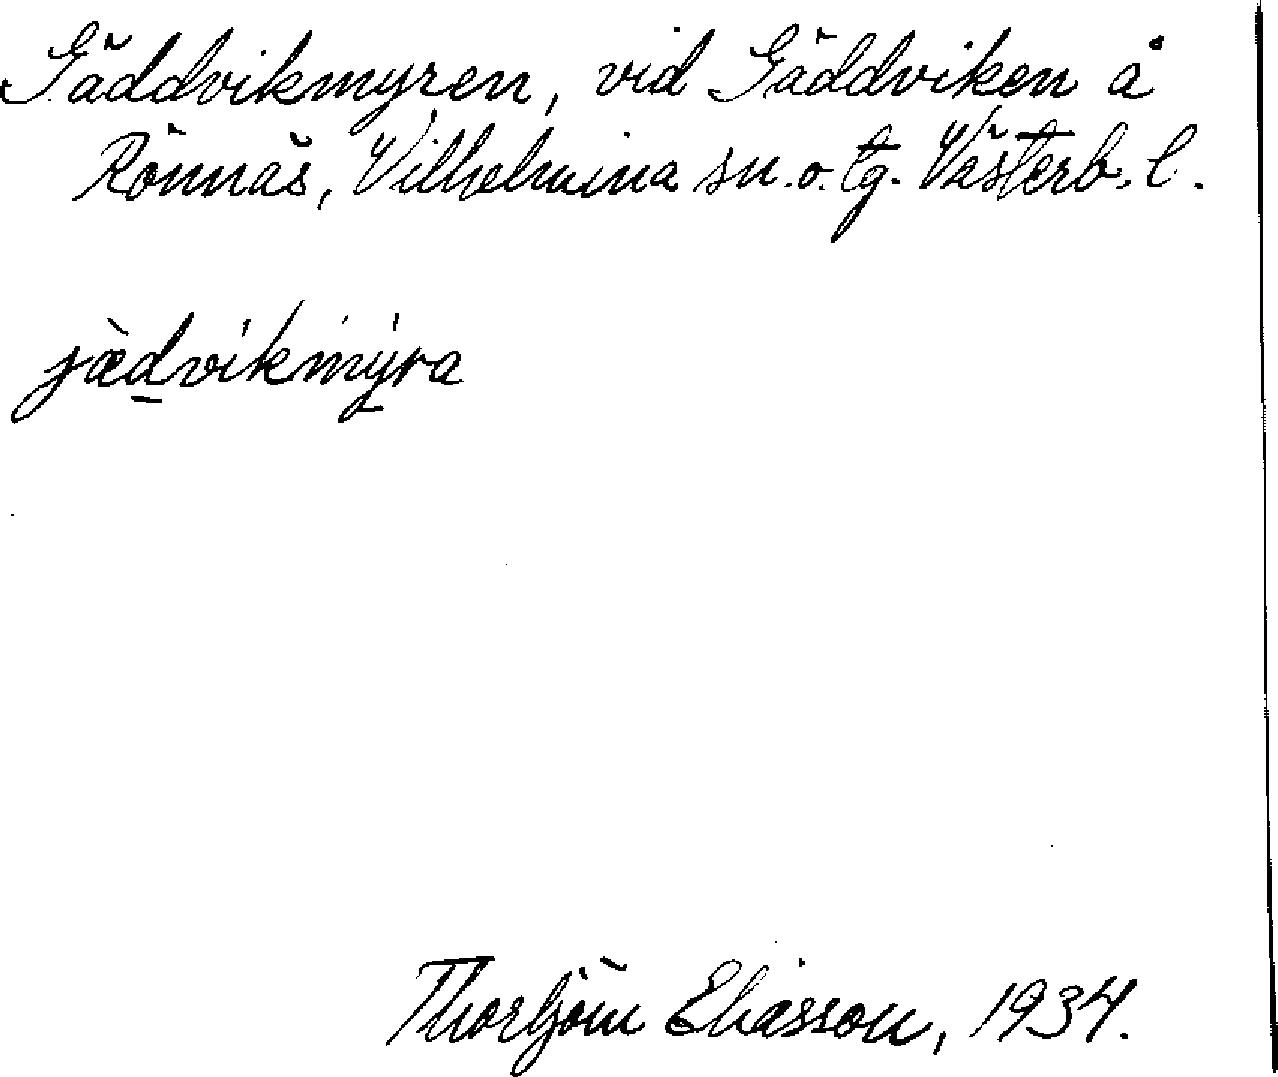 Gäddvikmyren, vid Gäddviken å
Rönnäs, Vilhelmina sn.o.tg. Västerb.l.
jæ̀dvikmyra
Thorbjörn Eliasson, 1934.